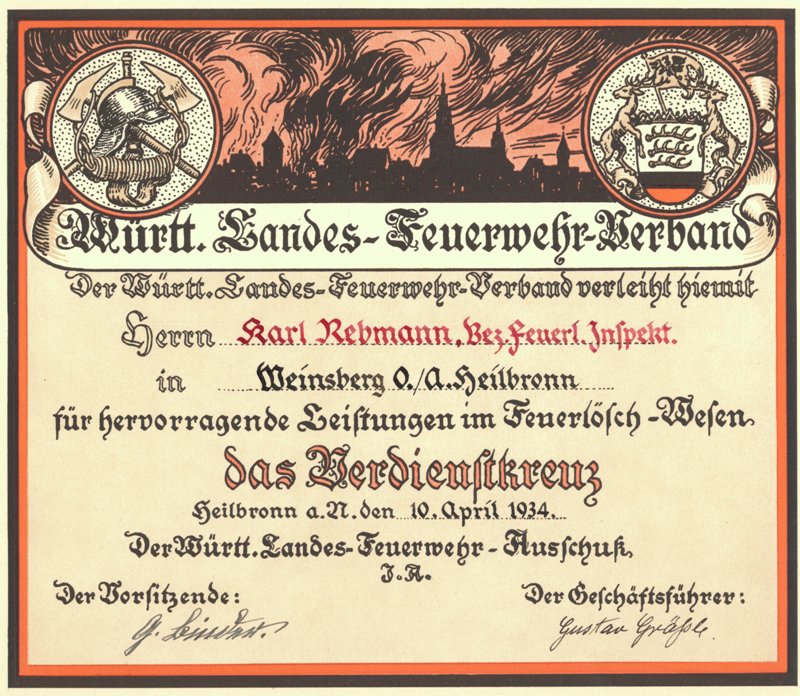 Württ. Landes-Feuerwehr-Verband
Der Württ. Landes-Feuerwehr-Verband verleiht hiemit
Herrn Karl Rebmann, Bez. Feuerl. Inspekt.
in Weinsberg O./A. Heilbronn
für hervorragende Leistungen im Feuerlösch-Wesen
das Verdienstkreuz
Heilbronn a.N. den 10. April 1934.
Der Württ. Landes-Feuerwehr-Ausschuß,
J.A.
Der Vorsitzende: Der Geschäftsführer:
G. Binder. Gustav Gräßle.